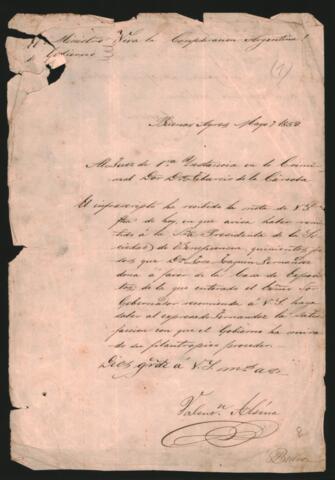 El Ministro Viva la Confederacion Argentina!
de Gobierno
(1)
Buenos Ayres Mayo 7 1852
Al Juez de 1ra Instancia en lo Crimi-
nal Dor Dn Eduardo
El infrascripto ha recibido la nota de V. S.
fha de hoy, en que avisa haber remi-
tido á la Sra Presidenta de la So-
ciedad de Beneficencia, quinientos pe-
sos que Dn Joaquin Fernandez
dona á favor de la Casa de Espósi-
tos, de lo que enterado el Exmo Sor
Gobernador recomienda á V. S. haga
saber al espresado Fernandez la satis-
faccion con que el Gobierno ha mira-
do su filantropico proceder.
Dios gde á V. S. ms as
Valentn Alsina